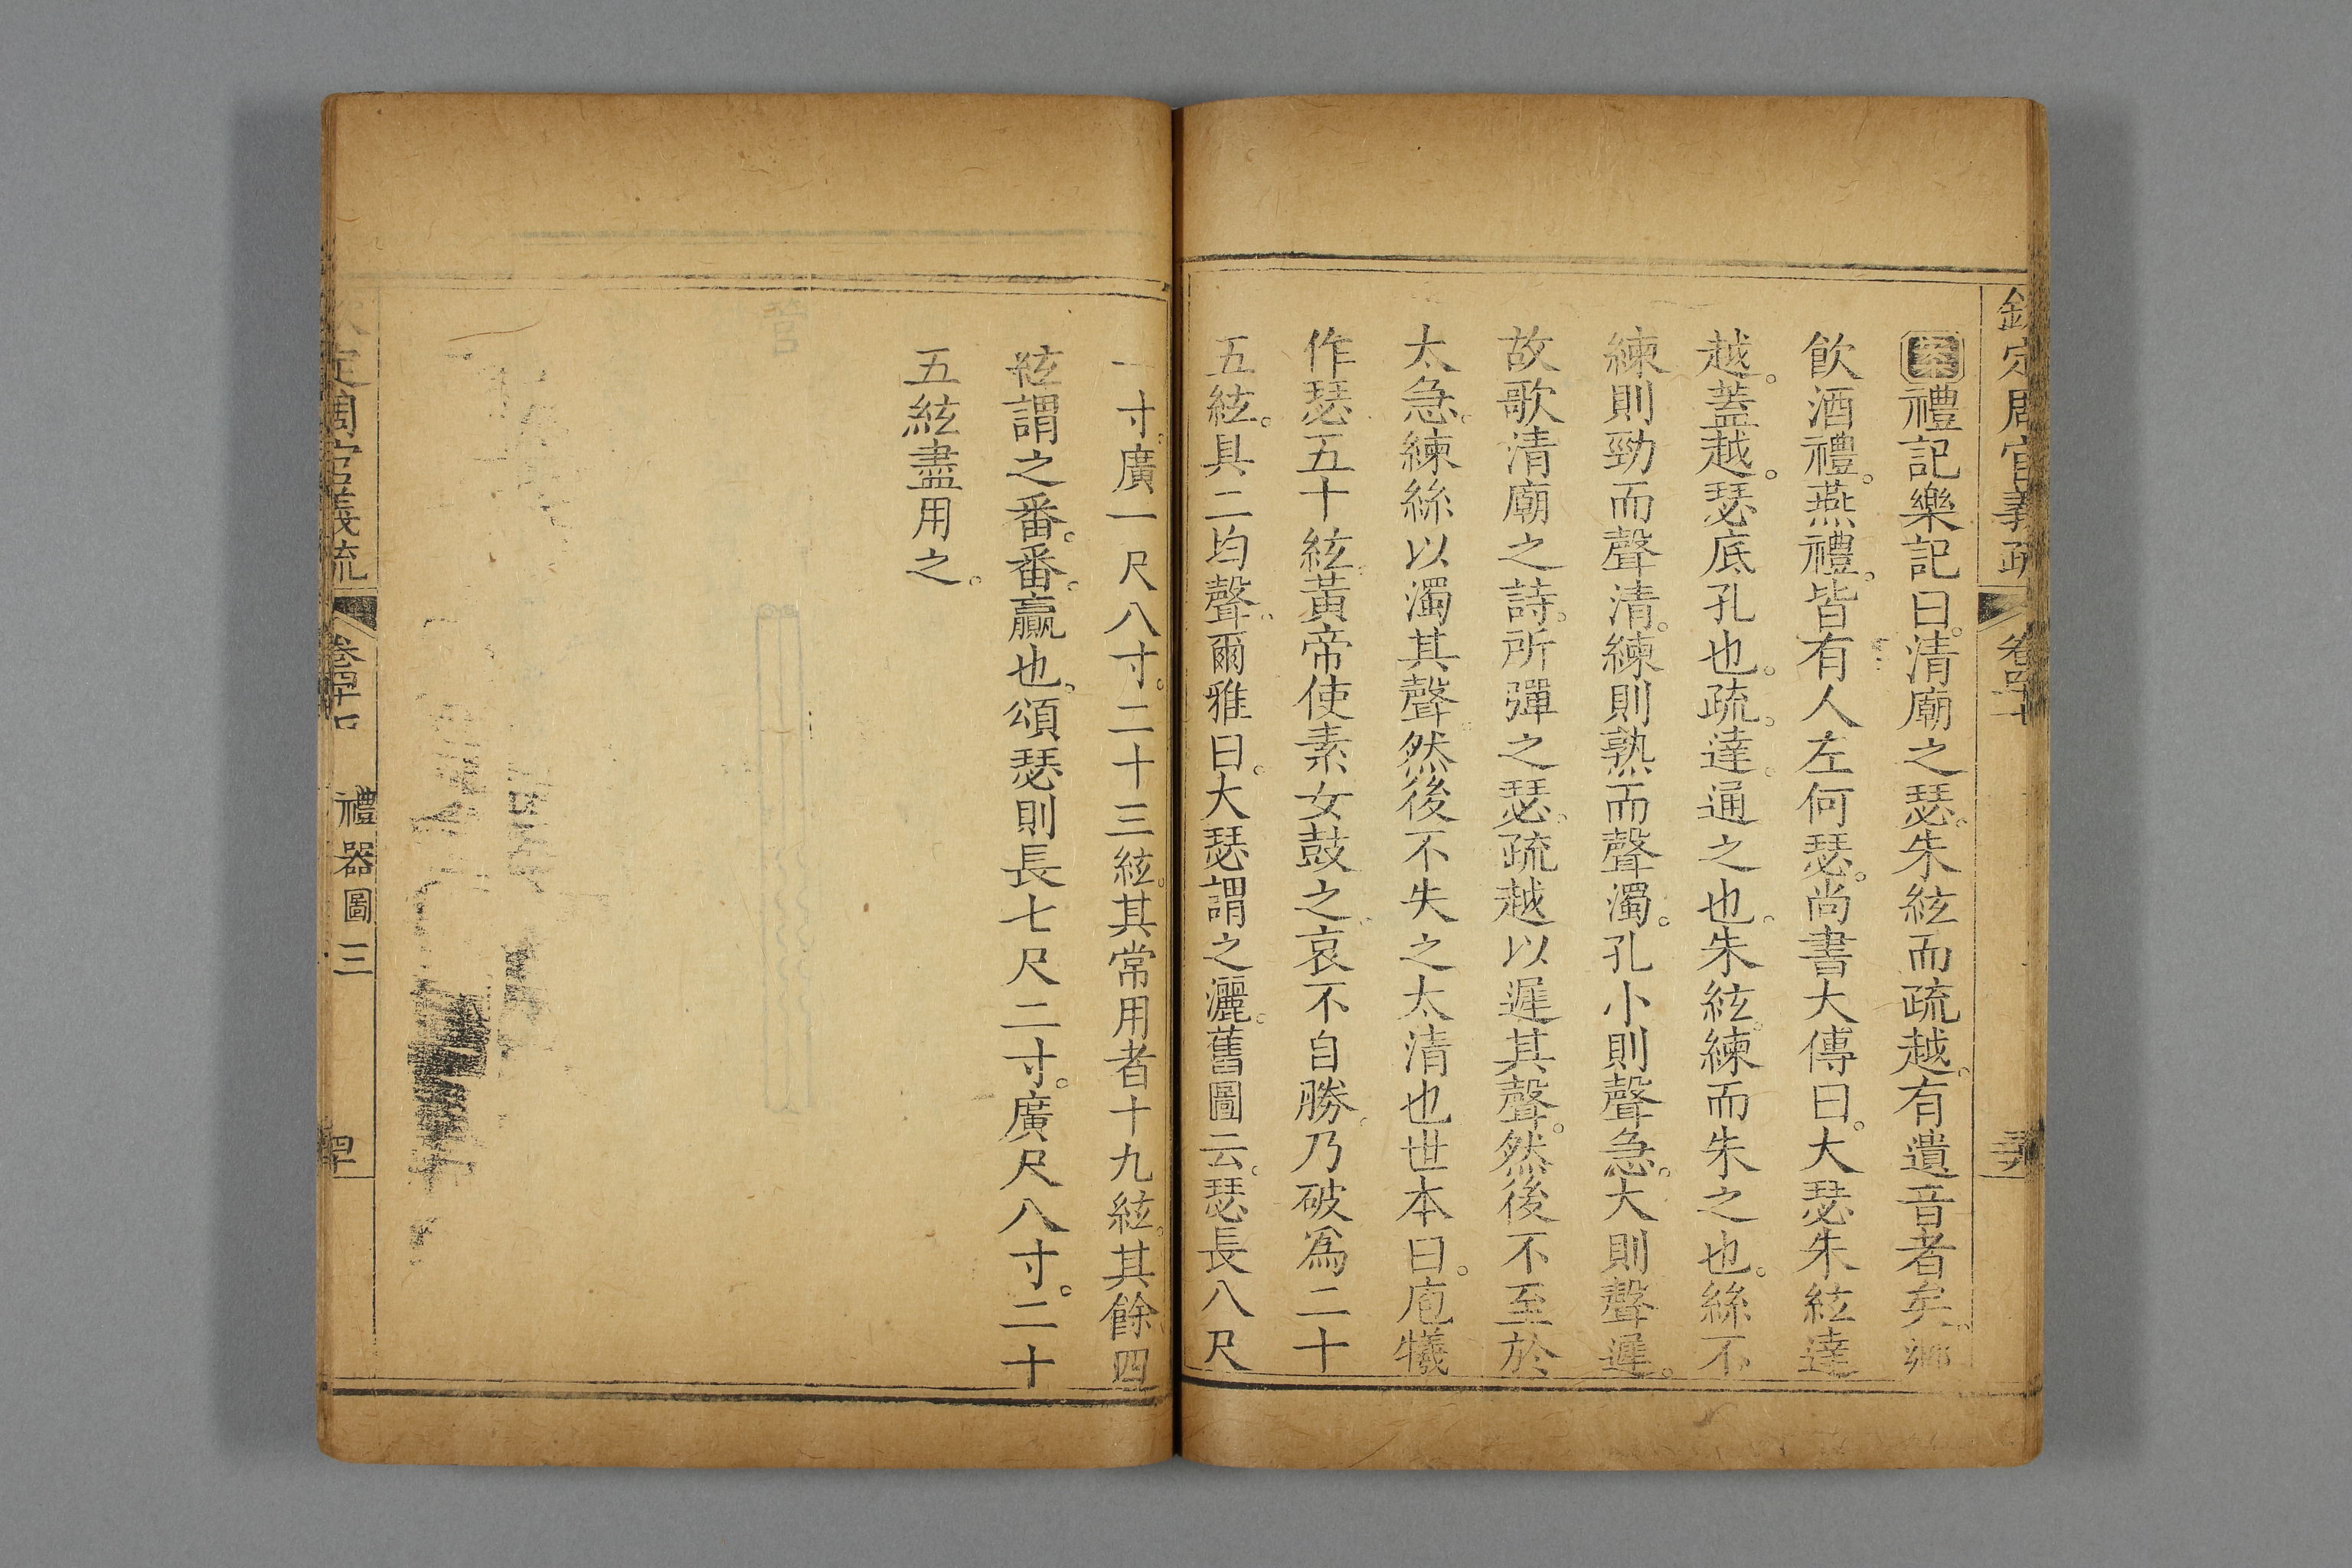 欽定周官義疏 卷四十
案禮記樂記曰。清廟之瑟。朱絃而疏越。有遺音者矣。鄉
飲酒禮。燕禮。皆有人左何瑟。尚書大傳曰。大瑟朱絃達
越。蓋越。瑟底孔也。疏。達。通之也。朱絃。練而朱之也。絲不
練則勁而聲清。練則熟而聲濁。孔小則聲急。大則聲遲。
故歌清廟之詩。所彈之瑟。疏越以遲其聲。然後不至於
太急。練絲以濁其聲。然後不失之太清也世本曰。庖犧
作瑟五十絃。黃帝使素女鼓之。哀不自勝。乃破爲二十
五絃。具二均聲。爾雅曰。大瑟謂之灑。舊圖云。瑟長八尺
一寸。廣一尺八寸。二十三絃。其常用者十九絃。其餘四
絃謂之番。番。贏也。頌瑟則長七尺二寸。廣尺八寸。二十
五絃盡用之。
定周官義疏 卷四十 禮器圖三
管